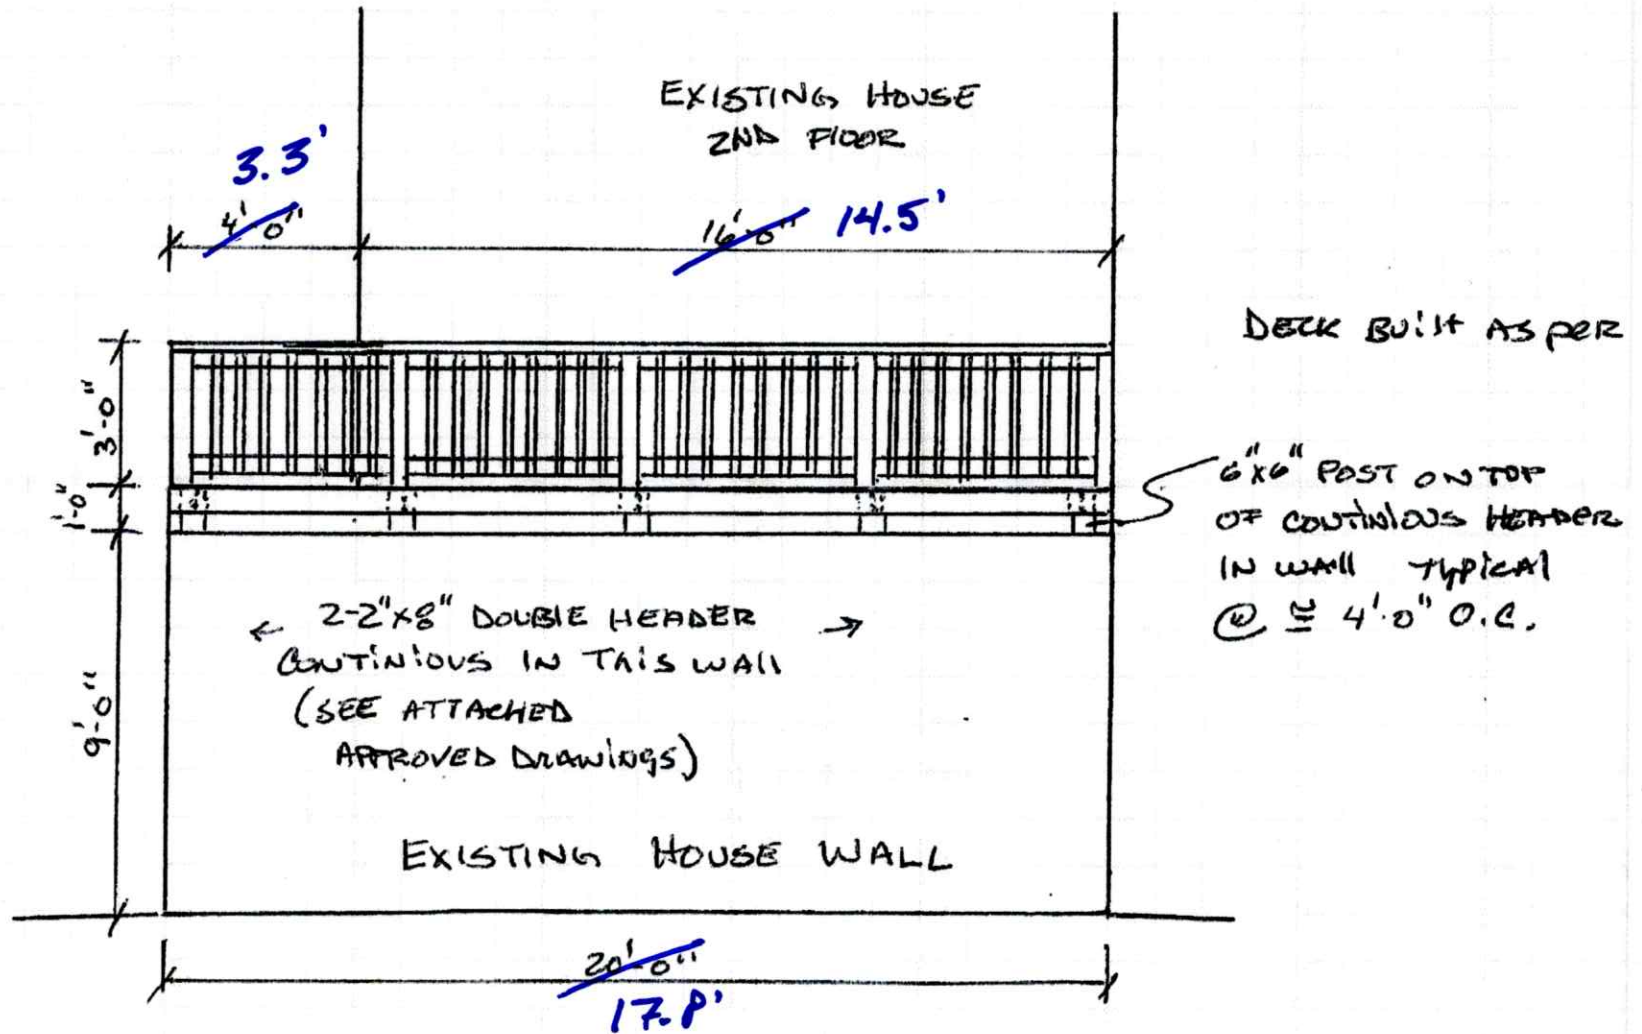 EXISTING HOUSE
2ND FLOOR
3.3'
4'-0"
16'-0" 14.5'
DECK BUilt AS PER
3'-0"
1'-0"
9'-0"
6"x6" POST ON TOP
OF CONTINIOUS HEADER
IN WAll TYPICAL
@ ≅ 4'-0" O.C.
← 2-2"x8" DOUBLE HEADER →
CONTINIOUS IN THIS WAll
(SEE ATTACHED
APPROVED DRAWINGS)
EXISTING HOUSE WALL
20'-0"
17.8'